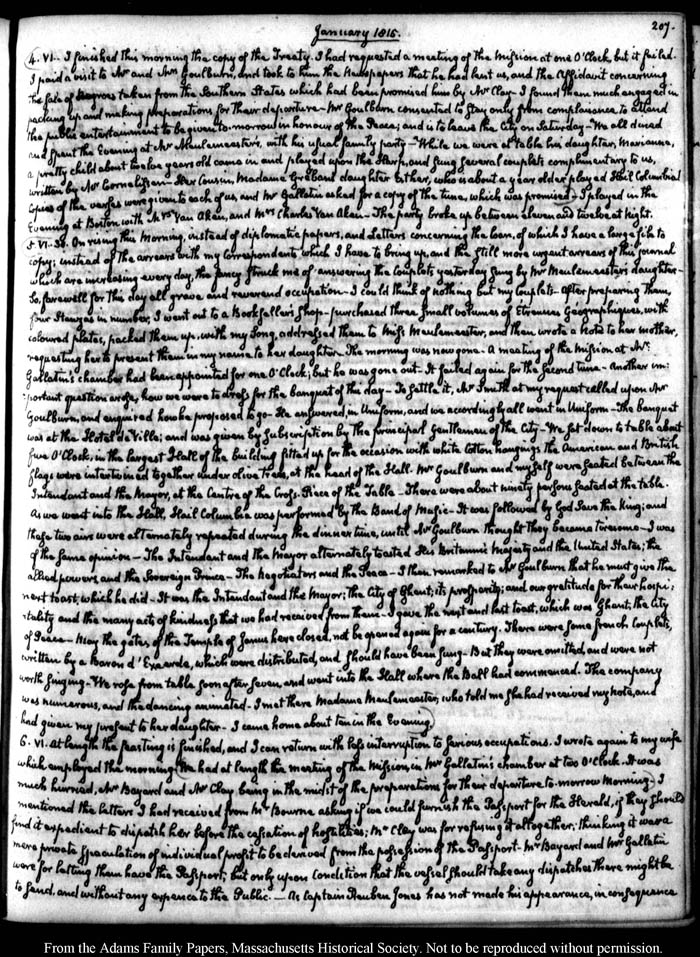 January 1815.
207.
4. VI. I finished this morning the copy of the Treaty. I had requested a meeting of the Mission at one O'Clock, but it failed.
I paid a visit to Mr and Mrs Goulburn, and took to him the Newspapers that he had lent us, and the Affidavit concerning
the sale of Negroes taken from the Southern States which had been promised him by Mr Clay. I found them much engaged in
packing up and making preparations for their departure. Mr Goulburn consented to stay only from complaisance to attend
the public entertainment to be given to-morrow in honour of the Peace; and is to leave the City on Saturday. We all dined
and spent the Evening at Mr Meulemeester's, with his usual family party. While we were at table his daughter, Marianne,
a pretty child about twelve years old came in and played upon the Harp, and sung several couplets complimentary to us,
written by Mr Cornelissen. Her Cousin, Madame Greban's daughter Esther, who is about a year older played Hail Columbia.
Copies of the verses were given to each of us, and Mr Gallatin asked for a copy of the tune, which was promised. I played in the
Evening at Boston with Mrs Van Aken, and Mrs Charles Van Aken. The party broke up between eleven and twelve at Night.
5. VI. 30. On rising this Morning, instead of diplomatic papers, and Letters concerning the loan, of which I have a large file to
copy; instead of the arrears with my correspondents which I have to bring up, and the still more urgent arrears of this journal
which are increasing every day, the fancy struck me of answering the Couplets yesterday sung by Mr Meulemeester's daughter.
So, farewell for this day all grave and reverend occupation. I could think of nothing but my couplets. After preparing them,
four Stanzas in number, I went out to a Bookseller's Shop. purchased three small volumes of Étrennes Géographiques, with
coloured plates, packed them up, with my Song, addressed them to Miss Meulemeester, and then wrote a Note to her mother,
requesting her to present them in my name to her daughter. The morning was now gone. A meeting of the Mission at Mr
Gallatin's chamber had been appointed for one O'Clock; but he was gone out. It failed again for the second time. Another im:
:portant question arose, how we were to dress for the banquet of this day. To settle it, Mr Smith at my request called upon Mr
Goulburn, and enquired how he proposed to go. He answered, in Uniform, and we accordingly all went in Uniform. The banquet
was at the Hotel de Ville; and was given by subscription by the principal Gentlemen of the City. We sat down to table about
five O'Clock, in the largest Hall of the building fitted up for the occasion with white cotton hangings. The American and British
flags were intertwined together under olive trees, at the head of the Hall. Mr Goulburn and myself were seated between the
Intendant and the Mayor, at the Centre of the Cross-Piece of the Table. There were about ninety persons seated at the table.
As we went into the Hall, Hail Columbia was performed by the Band of Music. It was followed by God Save the King; and
these two airs were alternately repeated during the dinner time, until Mr Goulburn thought they became tiresome. I was
of the same opinion. The Intendant and the Mayor alternately toasted His Britannic Majesty and the United States; the
allied powers and the Sovereign Prince. The Negotiators and the Peace. I then remarked to Mr Goulburn that he must give the
next toast, which he did. It was the Intendant and the Mayor; the City of Ghent; its prosperity; and our gratitude for their hospi:
:tality and the many acts of kindness that we had received from them. I gave the next and last toast, which was Ghent, the City
of Peace. May the gates of the Temple of Janus here closed, not be opened again for a century. There were some french Couplets,
written by a Baron d' , which were distributed, and should have been sung. But they were omitted, and were not
worth singing. We rose from table soon after seven, and went into the Hall where the Ball had commenced. The company
was numerous, and the dancing animated. I met there Madame Meulemeester, who told me she had received my note, and
had given my present to her daughter. I came home about ten in the Evening.
6. VI. At length the feasting is finished, and I can return with less interruption to serious occupations. I wrote again to my wife
which employed the morning. We had at length the meeting of the Mission, in Mr Gallatin's chamber at two O'Clock. It was
much hurried, Mr Bayard and Mr Clay, being in the midst of the preparations for their departure to-morrow Morning. I
mentioned the letters I had received from Mr Bourne asking if we could furnish the Passport for the Herald, if they should
find it expedient to dispatch her before the cessation of hostilities; Mr Clay was for refusing it altogether, thinking it was a
mere private speculation of individual profit to be derived from the possession of the Passport. Mr Bayard and Mr Gallatin
were for letting them have the Passport; but only upon condition that the vessel should take any dispatches there might be
to send, and without any expence to the Public. — As Captain Reuben Jones has not made his appearance, in consequence
From the Adams Family Papers, Massachusetts Historical Society. Not to be reproduced without permission.